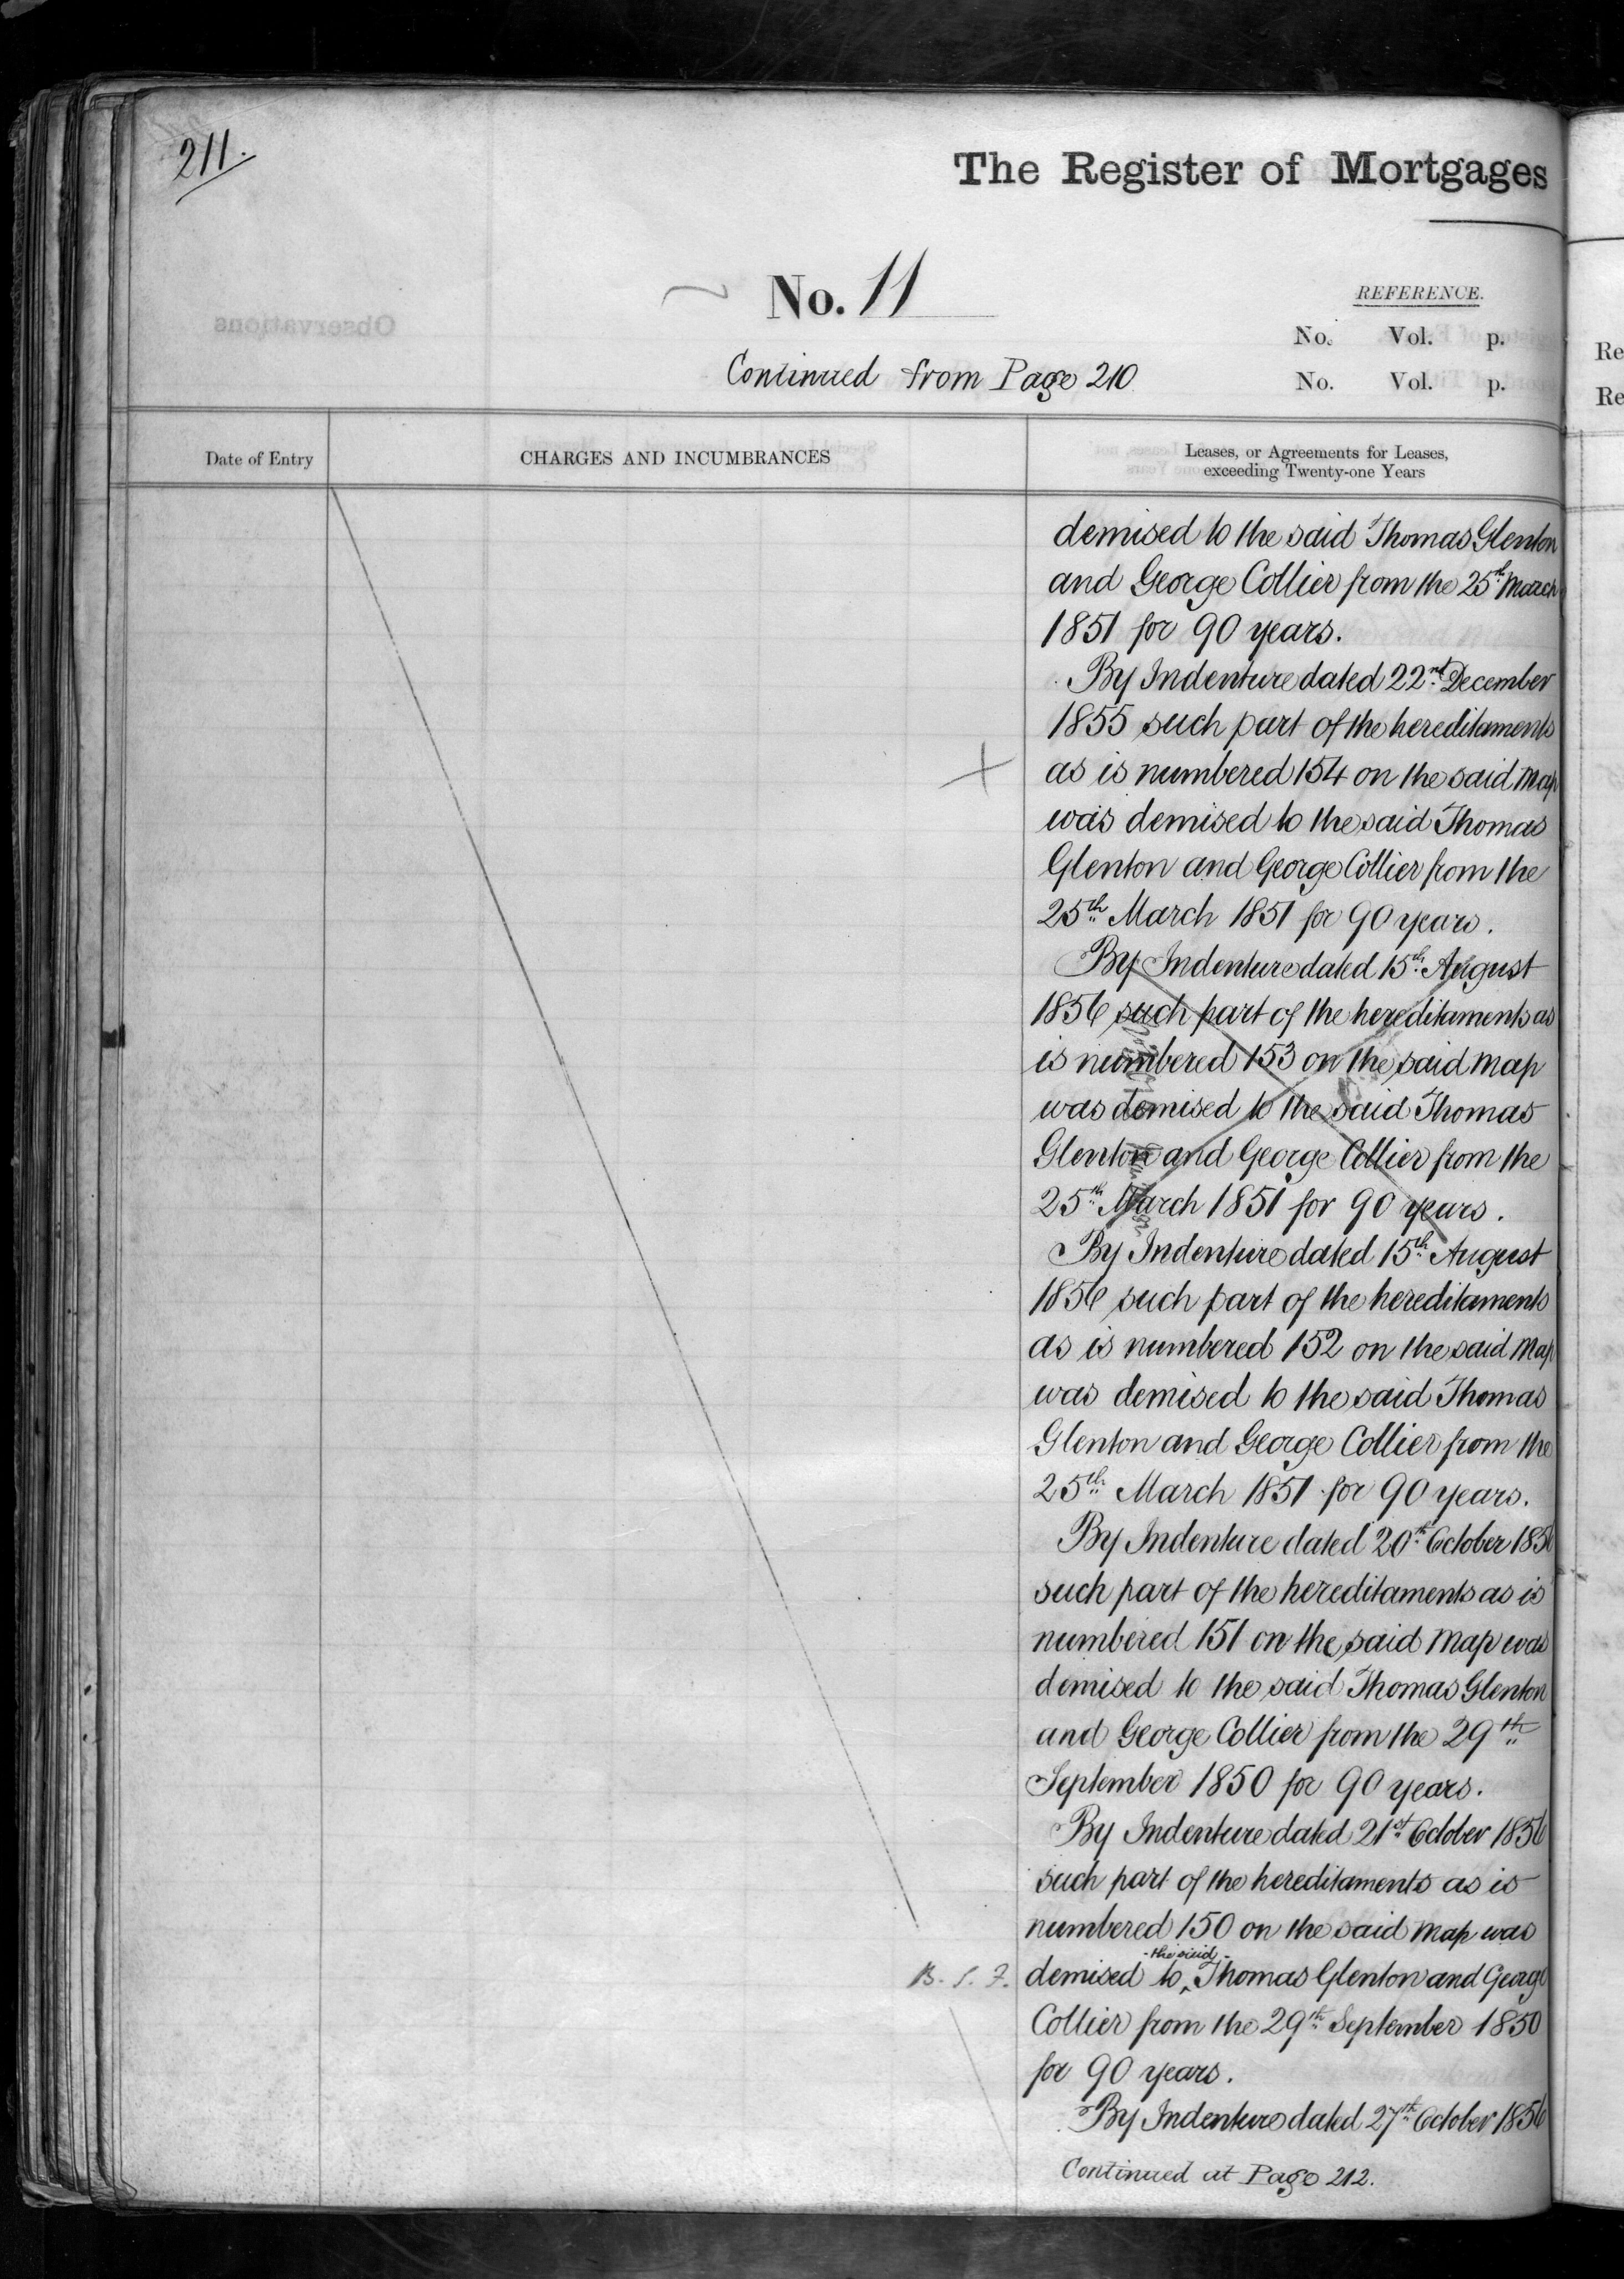 211.
The Register of Mortgages
No. 11
REFERENCE.
No. Vol. p.
Continued from Page 210
No. Vol. p.
Date of Entry
CHARGES AND INCUMBRANCES
Leases, or Agreements for Leases,
exceeding Twenty-one Years
demised to the said Thomas Glenton
and George Collier from the 25th March
1851 for 90 years.
By Indenture dated 22nd December
1855 such part of the hereditaments
as is numbered 154 on the said Map
was demised to the said Thomas
Glenton and George Collier from the
25th March 1851 for 90 years.
By Indenture dated 15th August
1856 such part of the hereditaments as
is numbered 153 on the said Map
was demised to the said Thomas
Glenton and George Collier from the
25th March 1851 for 90 years.
By Indenture dated 15th August
1856 such part of the hereditaments
as is numbered 152 on the said Map
was demised to the said Thomas
Glenton and George Collier from the
25th March 1851 for 90 years.
By Indenture dated 20th October 1856
such part of the hereditaments as is
numbered 151 on the said Map was
demised to the said Thomas Glenton
and George Collier from the 29th
September 1850 for 90 years.
By Indenture dated 21st October 1856
such part of the hereditaments as is
numbered 150 on the said Map was
demised to the said Thomas Glenton and George
Collier from the 29th September 1850
for 90 years.
By Indenture dated 27th October 1856
Continued at Page 212.
Re
Re